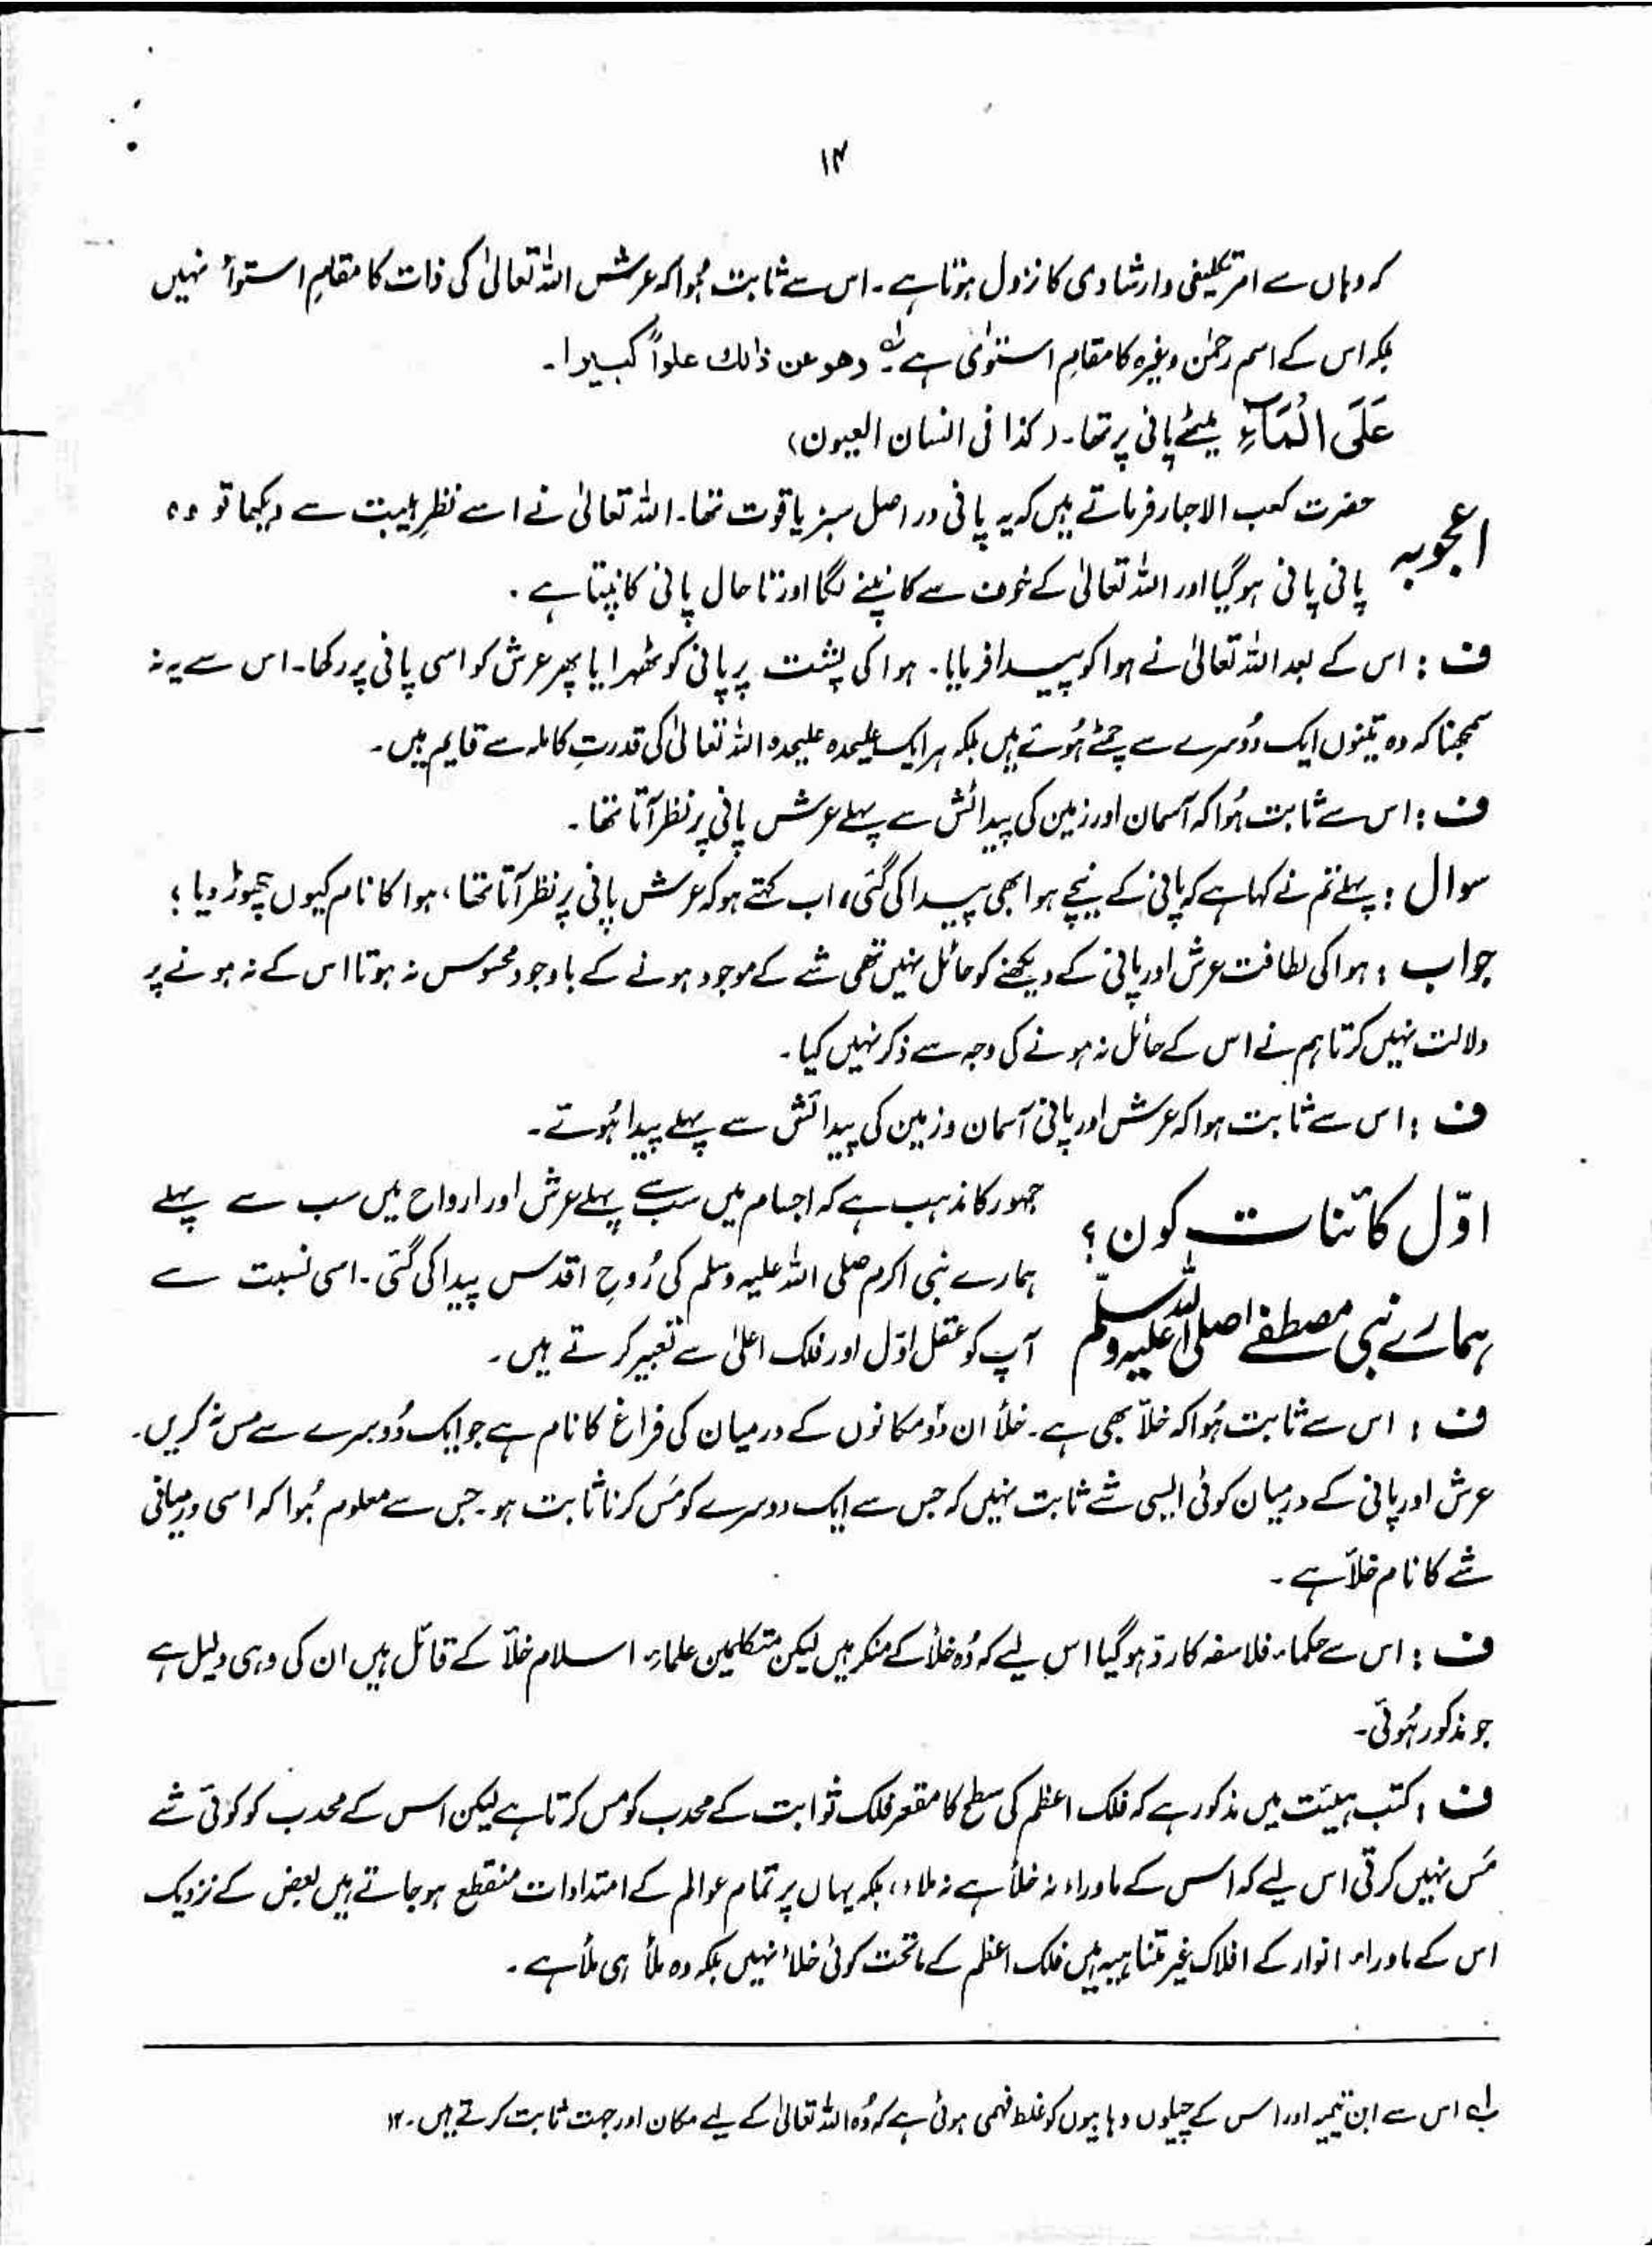 ۱۴
کہ وہاں سے امر تکلیفی و ارشادی کا نزول ہوتا ہے۔ اس سے ثابت ہوا کہ عرش اللہ تعالیٰ کی ذات کا مقامِ استوأ نہیں
بلکہ اس کے اسم رحمٰن وغیرہ کا مقامِ استوٰی ہے لہ۔ وھو عن ذالك علواً کبیرا۔
عَلَی الْمَآءِ یعنی پانی پر تھا۔ (کذا فی انسان العیون)
اعجوبہ حضرت کعب الاحبار فرماتے ہیں کہ یہ پانی در اصل سبز یاقوت تھا۔ اللہ تعالیٰ نے اسے نظرِ ہیبت سے دیکھا تو وہ
پانی پانی ہو گیا اور اللہ تعالیٰ کے خوف سے کانپنے لگا اور تا حال پانی کانپتا ہے۔
ف : اس کے بعد اللہ تعالیٰ نے ہوا کو پیدا فرمایا۔ ہوا کی پشت پر پانی کو ٹھہرایا پھر عرش کو اسی پانی پر رکھا۔ اس سے یہ نہ
سمجھنا کہ وہ تینوں ایک دُوسرے سے چمٹے ہُوئے ہیں بلکہ ہر ایک علیحدہ علیحدہ اللہ تعالیٰ کی قدرتِ کاملہ سے قایم ہیں۔
ف : اس سے ثابت ہُوا کہ آسمان اور زمین کی پیدائش سے پہلے عرش پانی پر نظر آتا تھا۔
سوال : پہلے تم نے کہا ہے کہ پانی کے نیچے ہوا بھی پیدا کی گئی، اب کہتے ہو کہ عرش پانی پر نظر آتا تھا، ہوا کا نام کیوں چھوڑ دیا ؟
جواب : ہوا کی لطافت عرش اور پانی کے دیکھنے کو حائل نہیں تھی شے کے موجود ہونے کے باوجود محسوس نہ ہوتا اس کے نہ ہونے پر
دلالت نہیں کرتا ہم نے اس کے حائل نہ ہونے کی وجہ سے ذکر نہیں کیا۔
ف : اس سے ثابت ہوا کہ عرش اور پانی آسمان و زمین کی پیدائش سے پہلے پیدا ہُوئے۔
اوّل کائنات کون ؟ جمہور کا مذہب ہے کہ اجسام میں سب سے پہلے عرش اور ارواح میں سب سے پہلے
ہمارے نبی اکرم صلی اللہ علیہ وسلم کی رُوحِ اقدس پیدا کی گئی۔ اسی نسبت سے
ہمارے نبی مصطفےٰ صلی اللہ علیہ وسلم آپ کو عقلِ اوّل اور فلک اعلیٰ سے تعبیر کرتے ہیں۔
ف : اس سے ثابت ہُوا کہ خلآ بھی ہے۔ خلأ ان دُو مکانوں کے درمیان کی فراغ کا نام ہے جو ایک دُوسرے سے مس نہ کریں۔
عرش اور پانی کے درمیان کوئی ایسی شے ثابت نہیں کہ جس سے ایک دوسرے کو مَس کرنا ثابت ہو۔ جس سے معلوم ہُوا کہ اسی درمیانی
شے کا نام خلآ ہے۔
ف : اس سے حکماء فلاسفہ کا ردّ ہو گیا اس لیے کہ وُہ خلأ کے منکر ہیں لیکن متکلمین علماءِ اسلام خلآ کے قائل ہیں ان کی وہی دلیل ہے
جو مذکور ہُوئی۔
ف : کتب ہیئت میں مذکور ہے کہ فلک اعظم کی سطح کا مقعر فلک ثوابت کے محدب کو مس کرتا ہے لیکن اس کے محدب کو کوئی شے
مَس نہیں کرتی اس لیے کہ اس کے ماوراء نہ خلأ ہے نہ ملاء، بلکہ یہاں پر تمام عوالم کے امتدادات منقطع ہو جاتے ہیں بعض کے نزدیک
اس کے ماوراء انوار کے افلاک غیر متناہیہ ہیں فلک اعظم کے ماتحت کوئی خلأ نہیں بلکہ وہ ملأ ہی ملأ ہے۔
لہ اس سے ابن تیمیہ اور اس کے چیلوں وہابیوں کو غلط فہمی ہوئی ہے کہ وُہ اللہ تعالیٰ کے لیے مکان اور جہت ثابت کرتے ہیں۔ ۱۲